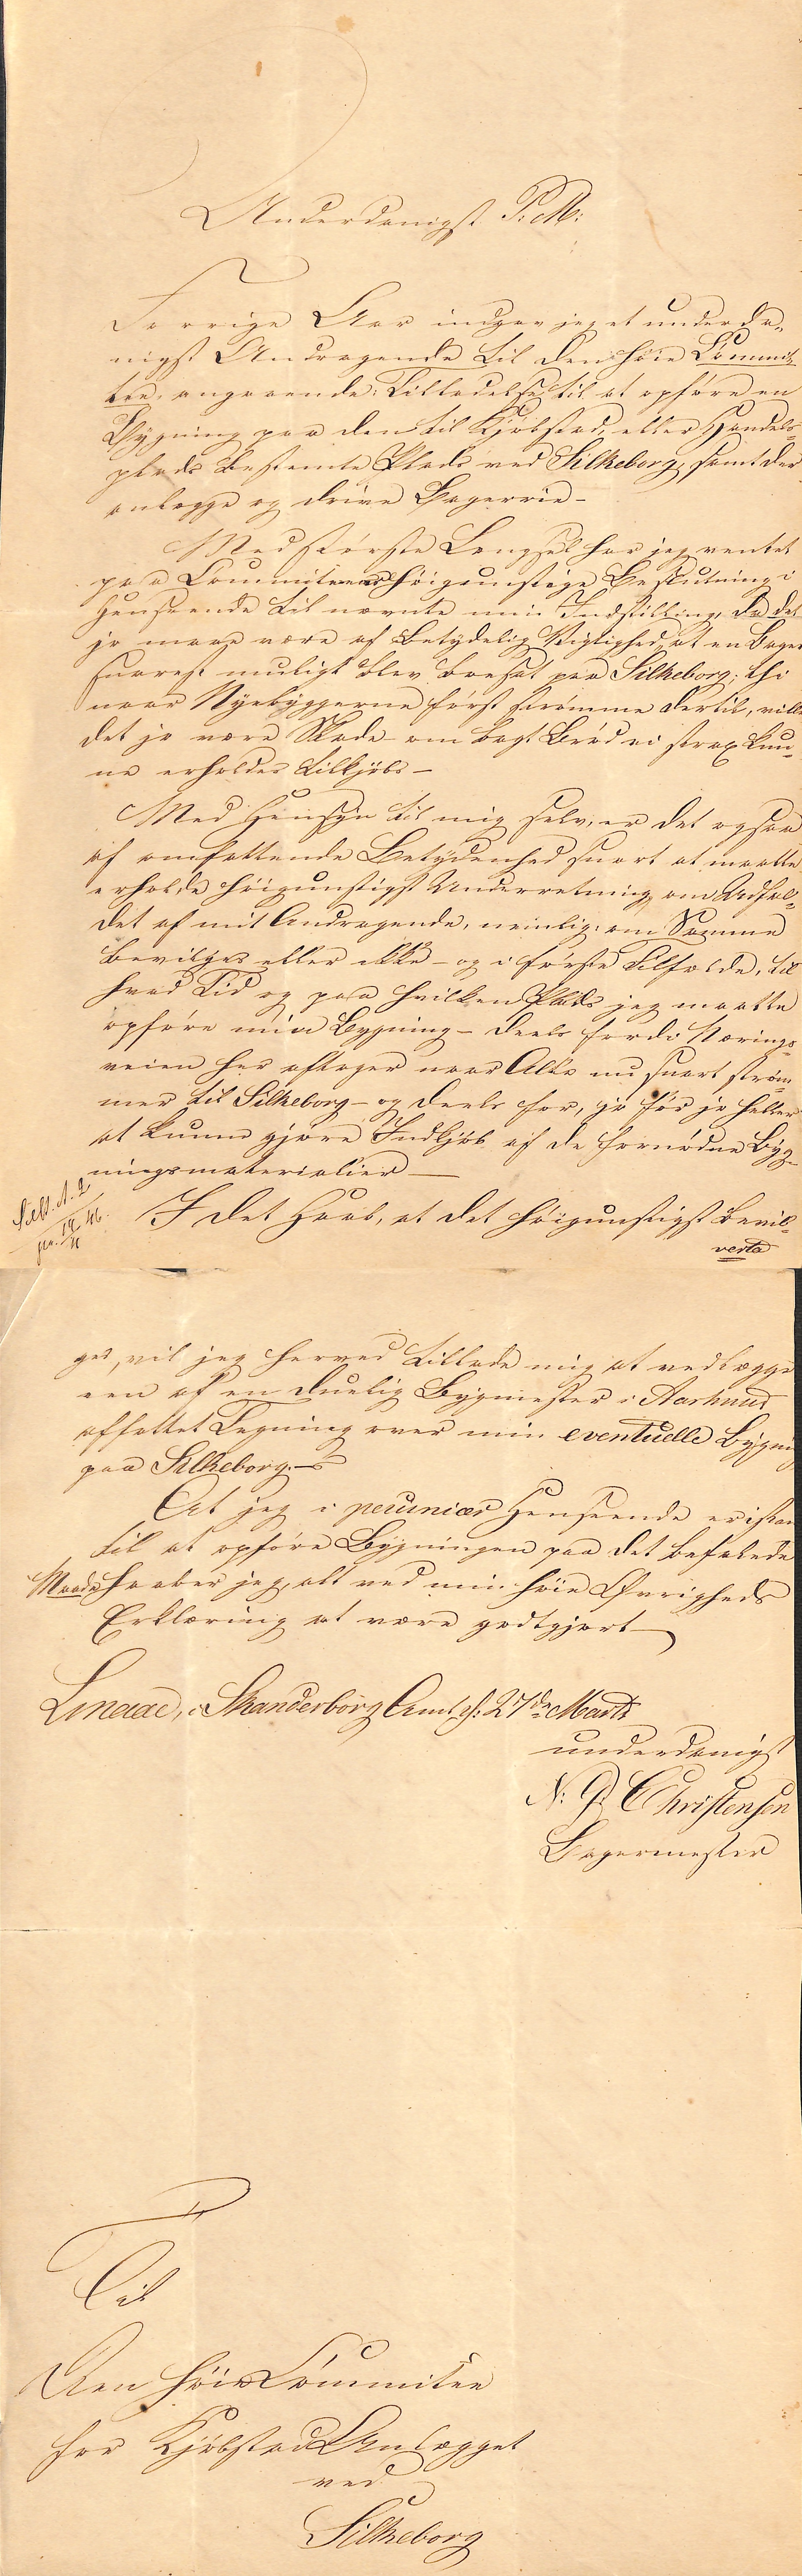 Underdanigst P. M:
Forrige Aar indgav jeg et underda-
nigst Andragende til den høie Commit-
tee, angaaende: Tilladelse til at opføre en
Bygning paa den til Kjøbstad, eller Handels-
plads bestemte Plads ved Silkeborg, samt der
anlægge og drive Bagerrie -
Med største Længsel har jeg ventet
paa Committeens høigunstige Beslutning i
Henseende til nævnte min Indstilling, da det
jo maae være af betydelig Vigtighed, at en Bager
snarest muligt blev bosat paa Silkeborg; thi
naar Nyebyggerne først strømme dertil, ville
det jo være Skade om bagt Brød ei strax kun-
ne erholdes tilkjøbs -
Med Hensyn til mig selv, er det ogsaa
af omfattende Betydenhed snart at maatte
erholde høigunstigst Underretning om Udfal-
det af mit Andragende, nemlig: om Samme
bevilges eller ikke - og i første Tilfælde, til
hvad Tid og paa hvilken Plads jeg maatte
opføre min Bygning - deels fordi Nærings-
veien her aftager naar Alle nu snart strøm-
mer til Silkeborg - og deels for, jo før jo heller
at kunne gjøre Indkjøb af de fornødne Byg-
ningsmaterialier -
Silk. A. 2
pr. 14/4 46.
I det Haab, at det høigunstigst bevil-
verte
ges, vil jeg herved tillade mig at vedlægge
een af en duelig Bygmester i Aarhuus
affattet Tegning over min eventuelle Bygning
paa Silkeborg. -
At jeg i pecuniær Henseende er istan
til at opføre Bygningen paa det befalede
Maade haaber jeg, alt ved min høie Øvrigheds
Erklæring at være godtgjort -
Linaae, i Skanderborg Amt d: 27de Marts
underdanigst
N: P. Christensen
Bagermester
Til
Den høie Committee
for Kjøbstad Anlægget
ved
Silkeborg